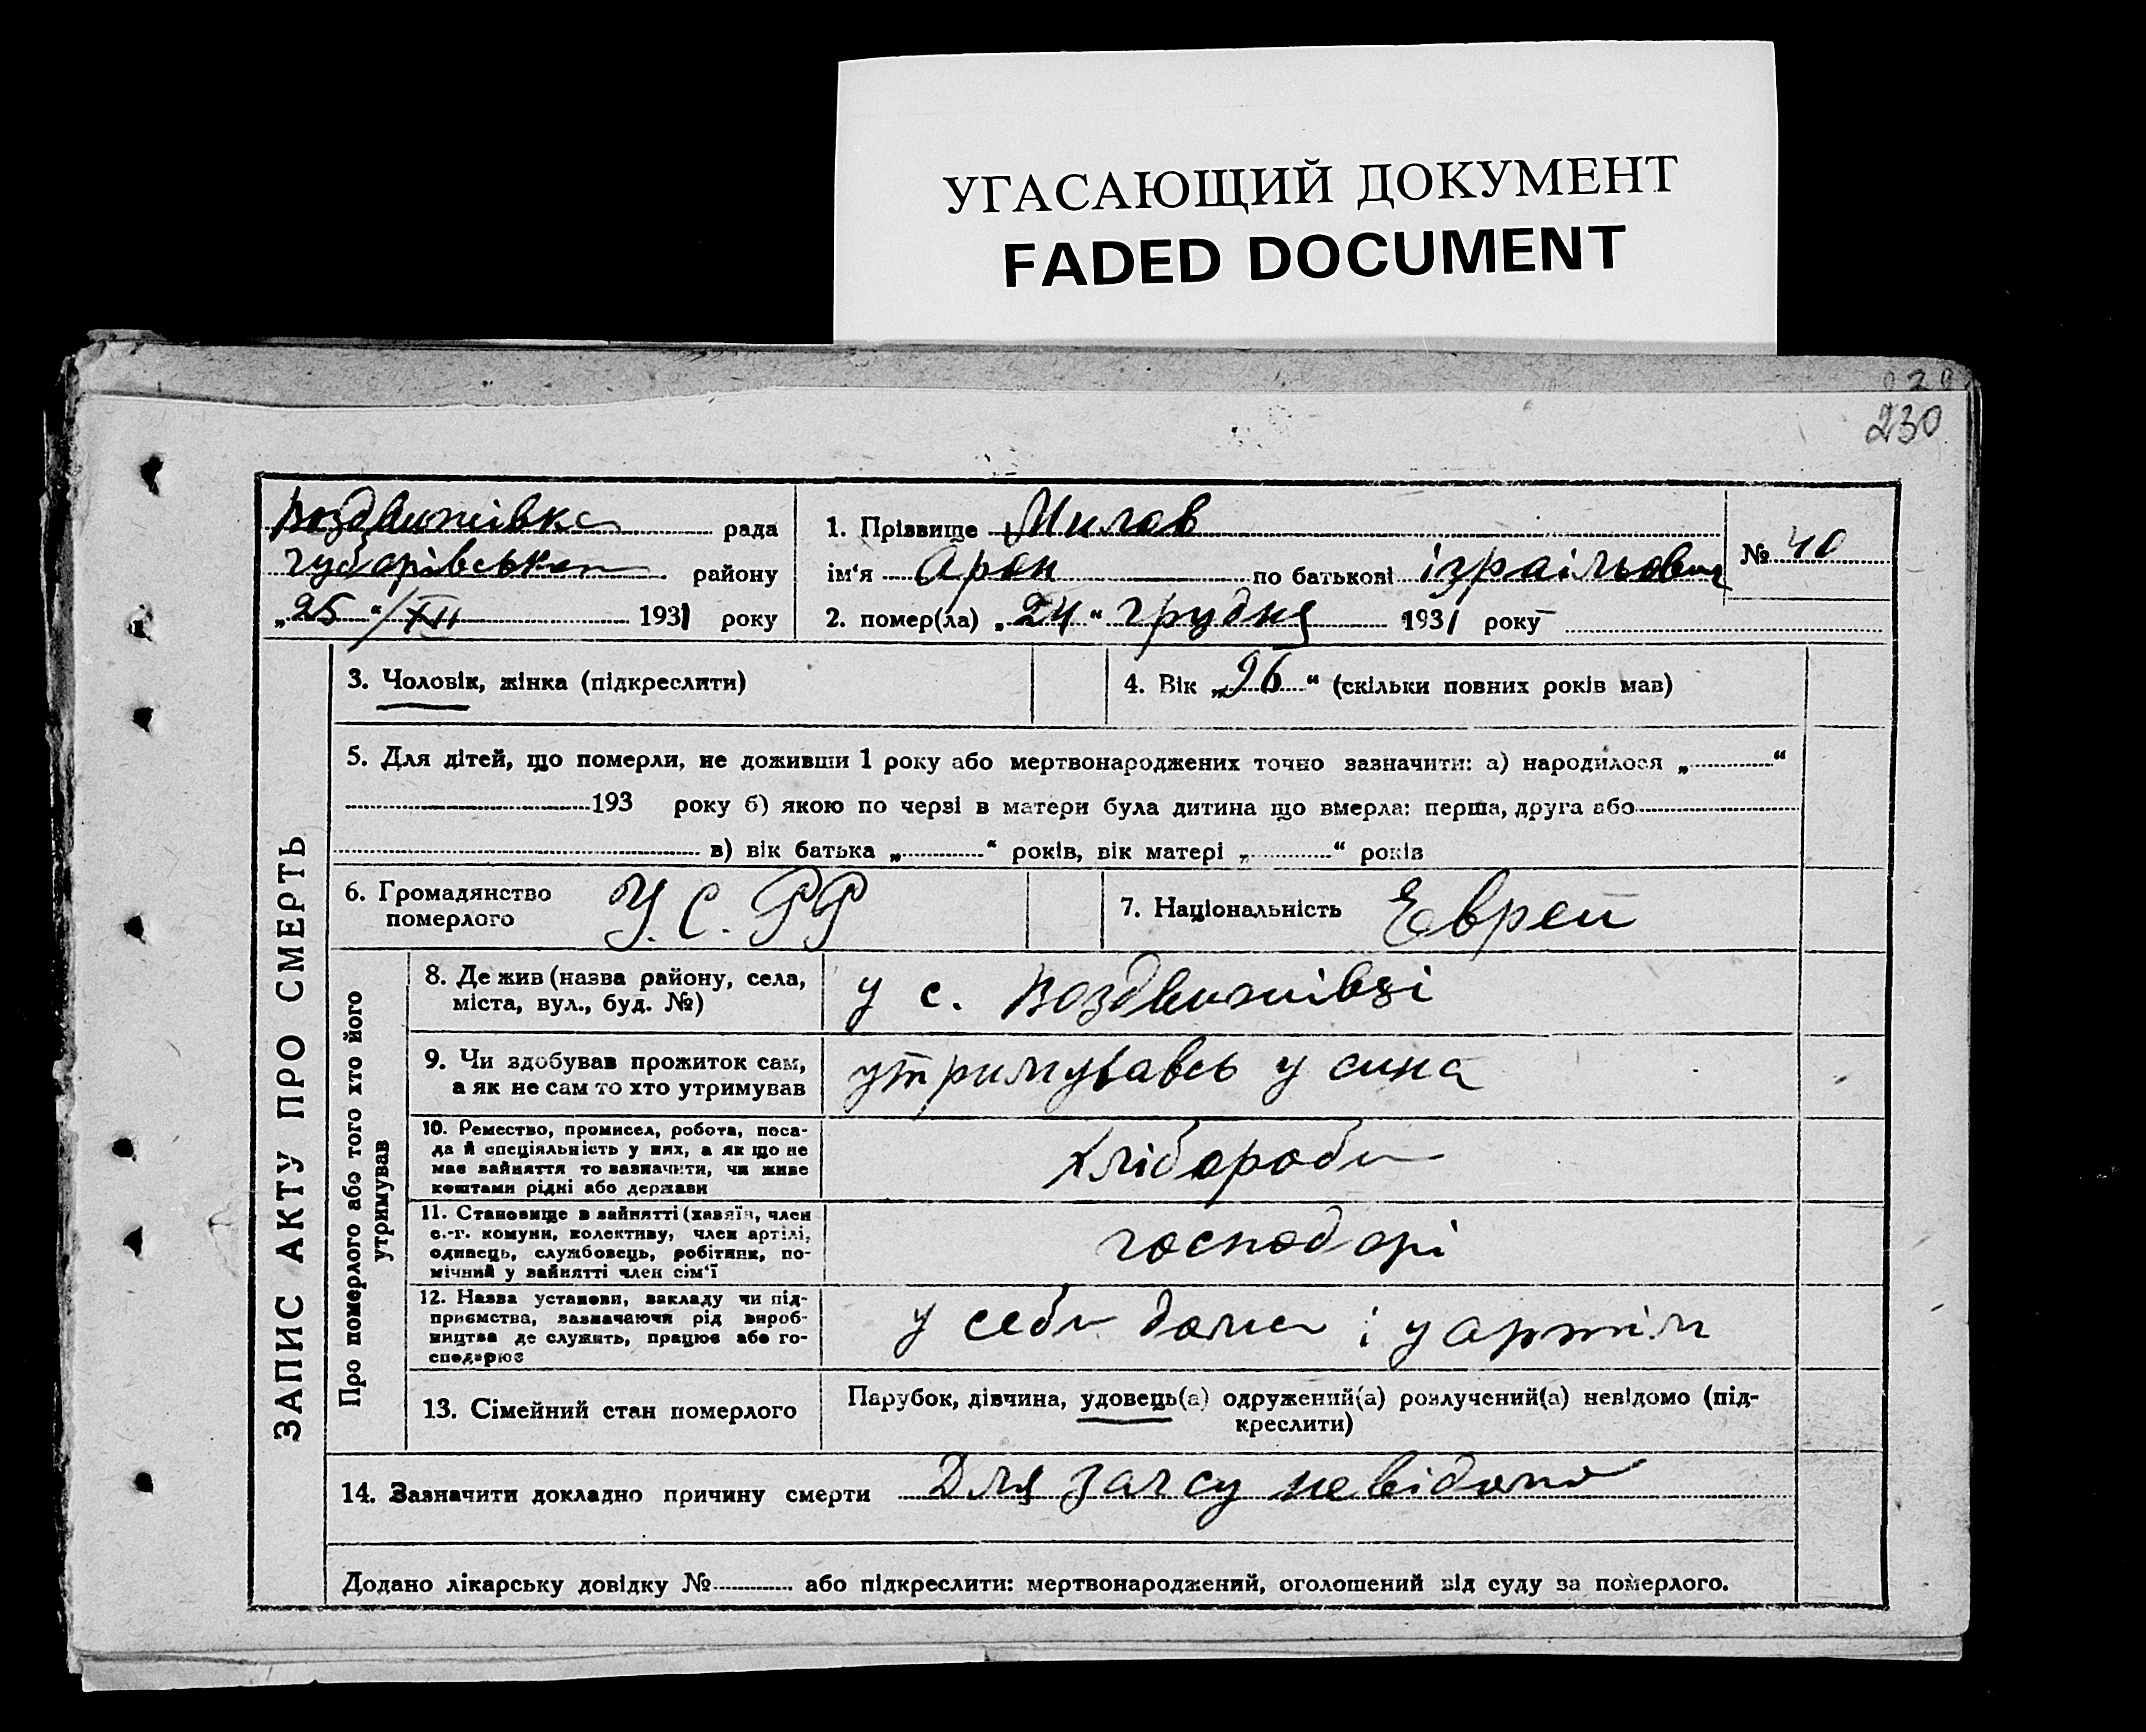 УГАСАЮЩИЙ ДОКУМЕНТ
FADED DOCUMENT
230
Воздвижівка рада
району
„25“/XII 1931 року
1. Прізвище Милов
ім‘я Арон по батькові ізраільович
2. помер(ла) „24“ грудня 1931 року
№ 40
ЗАПИС АКТУ ПРО СМЕРТЬ
3. Чоловік, жінка (підкреслити)
4. Вік „96“ (скільки повних років мав)
5. Для дітей, що померли, не доживши 1 року або мертвонароджених точно зазначити: а) народилося „“
193 року б) якою по черзі в матери була дитина що вмерла: перша, друга або
в) вік батька „“ років, вік матері „“ років
6. Громадянство
померлого
У.С.РР
7. Національність Еврей
Про померлого або того хто його
утримував
8. Де жив (назва району, села,
міста, вул., буд. №)
у с. Воздвижівці
9. Чи здобував прожиток сам,
а як не сам то хто утримував
утримувавсь у сина
10. Ремество, промисел, робота, поса-
да й спеціяльність у них, а як що не
має зайняття то зазначити, чи живе
коштами рідні або держави
хлібороби
11. Становище в зайнятті (хазяїн, член
с.-г. комуни, колективу, член артілі,
одинець, службовець, робітник, по-
мічний у зайнятті член сім‘ї
господарі
12. Назва установи, закладу чи під-
приємства, зазначаючи рід вироб-
ництва де служить, працює або го-
сподарює
у себи дома і у артіли
13. Сімейний стан померлого
Парубок, дівчина, удовець(а) одружений(а) розлучений(а) невідомо (під-
креслити)
14. Зазначити докладно причину смерти Для загсу невідомо
Додано лікарську довідку № або підкреслити: мертвонароджений, оголошений від суду за померлого.